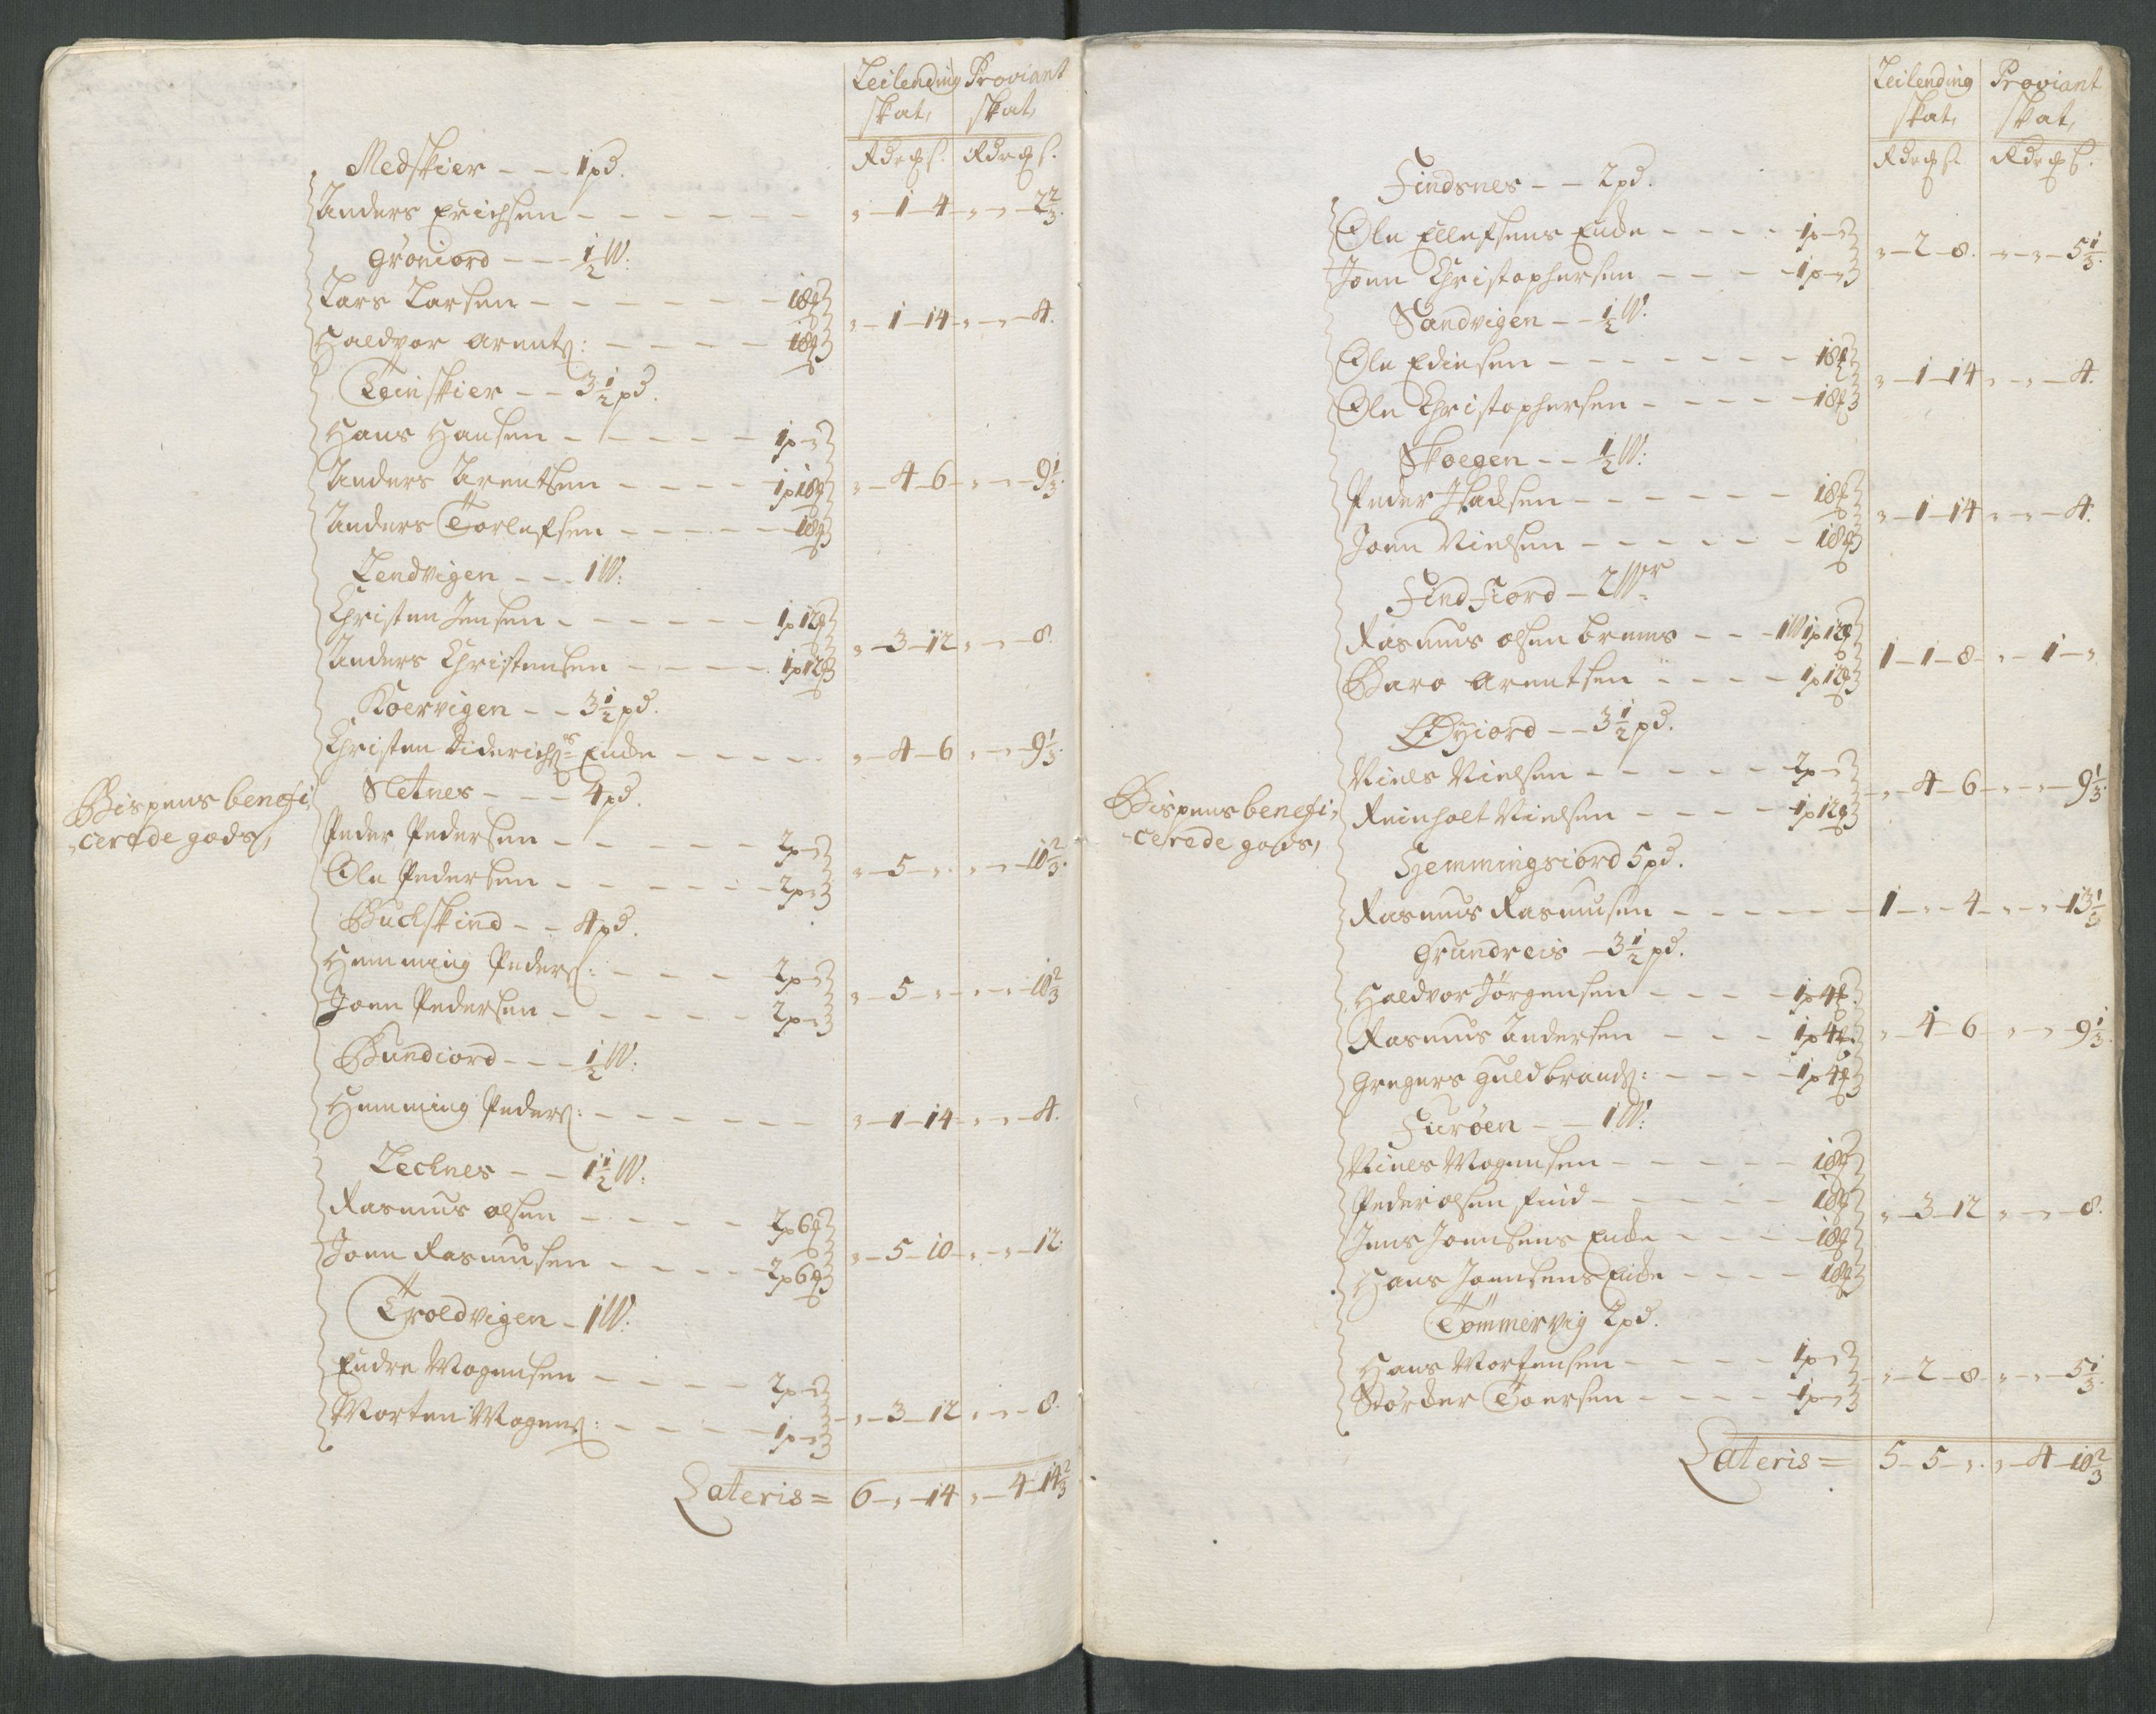 Leilending Proviant
skat, skat,
Rdr ꝑ s. Rdr ꝑ s.
Medskier - - 1 pd.
Anders Erichsen - - - - - - „ - 1 - 4 - „ - „ - 2 2/3.
Grøniord - - - 1/2 W:
Lars Larsen - - - - - - 18
Haldvor Arents: - - - - 18
„ - 1 - 14 - „ - „ - 4.
Teinskier - - 3 1/2 pd.
Hans Hansen - - - - - 1p - „
Anders Arentsen - - - - 1p 18
Anders Torlefsen - - - - - 18
„ - 4 - 6 - „ - „ - 9 1/3.
Lendvigen - - - 1 W:
Christen Jensen - - - - - - 1p 12
Anders Christensen - - - - 1p 12
„ - 3 - 12 - „ - „ - 8.
Koervigen - - 3 1/2 pd.
Christen Diderichs Enche - - - - „ - 4 - 6 - „ - „ - 9 1/3.
Bispens benefi-
cerede gods,
Sletnes - - - 4 pd.
Peder Pedersen - - - - - 2p - „
Ole Pedersen - - - - - 2p - „
„ - 5 - „ - „ - „ - 10 2/3.
Buckskind - - 4 pd.
Hemming Peders: - - - - 2p - „
Joen Pedersen - - - - - 2p - „
„ - 5 - „ - „ - „ - 10 2/3
Bundiord - - - 1/2 W:
Hemming Peders: - - - - - - „ - 1 - 14 - „ - „ - 4.
Lecknes - - 1 1/2 W:
Rasmus Olsen - - - - 2p 6
Joen Rasmusen - - - - 2p 6
„ - 5 - 10 - „ - „ - 12.
Troldvigen - 1 W:
Endre Mogensen - - - - 2p - „
Morten Mogens: - - - - 1p - „
„ - 3 - 12 - „ - „ - 8.
Lateris = 6 - „ - 14 - „ - 4 - 14 2/3
Leilending Proviant
skat, skat,
Rdr ꝑ s. Rdr ꝑ s.
Findsnes - - 2 pd.
Ole Ellefsens Enche - - - - 1p - „
Joen Christophersen - - - - 1p - „
„ - 2 - 8. „ - „ - 5 1/3.
Sandvigen - - 1/2 W:
Ole Edissen - - - - - - - 18
Ole Christophersen - - - - - 18
„ - 1 - 14 - „ - „ - 4.
Skoegen - - 1/2 W:
Peder Isacksen - - - - - - 18
Joen Nielsen - - - - - - 18
„ - 1 - 14 - „ - „ - 4.
Findfiord - 2 Wr
Rasmus Olsen Brems - - - 1W 1p 12
Baro Arentsen - - - - 1p 12
1 - 1 - 8 - „ - 1 - „
Øyiord - - 3 1/2 pd.
Niels Nielsen - - - - - 2p - „
Reinholt Nielsen - - - - 1p 12
„ - 4 - 6 - „ - „ - 9 1/3.
Bispens benefi-
cerede gods,
Hemmingsiord 5 pd.
Rasmus Rasmusen - - - - - - 1 - „ - 4 - „ - „ - 13 1/3
Grundreis - 3 1/2 pd.
Haldvor Jørgensen - - - - 1p 4
Rasmus Andersen - - - - 1p 4
Gregers Guldbrands: - - - - 1p 4
„ - 4 - 6 - „ - „ - 9 1/3.
Furøen - - 1 W:
Niels Mogensen - - - - - 18
Peder Olsen Find - - - - - 18
Jens Joensens Enche - - - - 18
Hans Joensens Enche - - - - 18
„ - 3 - 12 - „ - „ - 8.
Tømmervig 2 pd.
Hans Mortensen - - - - - 1p - „
Størcher Toersen - - - - 1p - „
„ - 2 - 8 - „ - „ - 5 1/3.
Lateris = 5 - 5 - „ - „ - 4 - 10 2/3